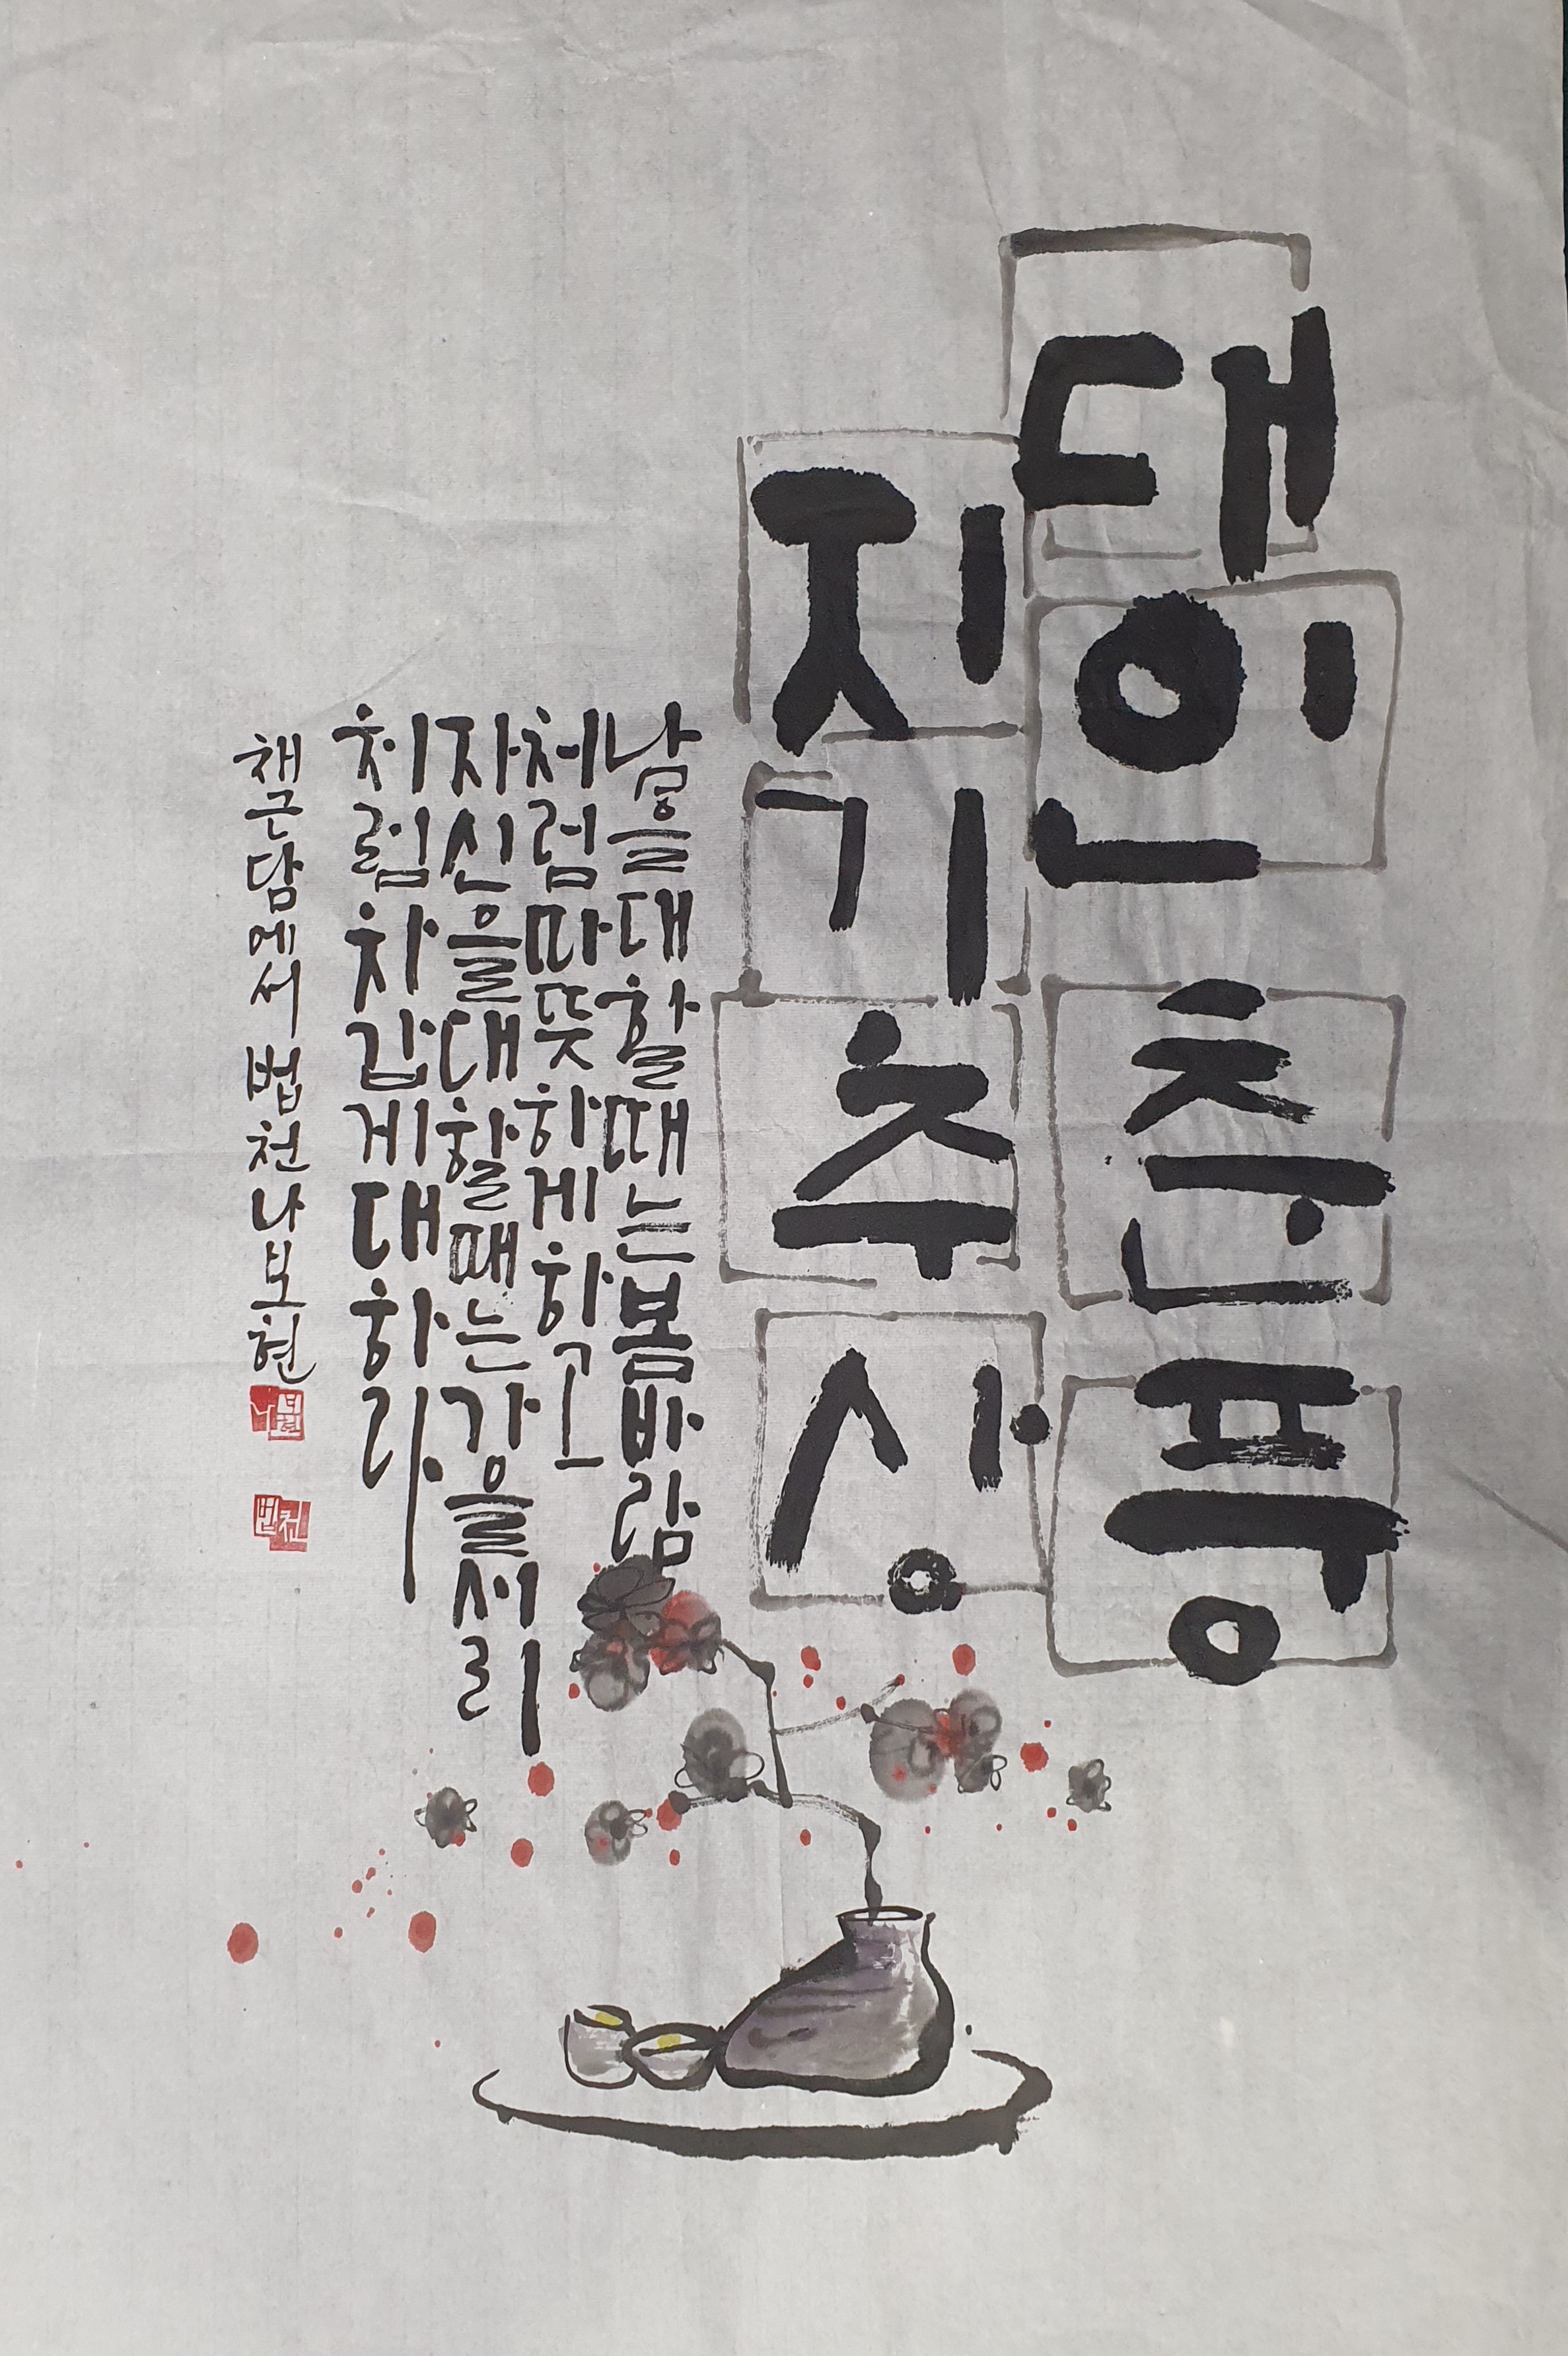 대인춘풍
지기추상
남을대할때는봄바람
처럼따뜻하게하고
자신을대할때는가을서리
처럼차갑게대하라
채근담에서 법천나보현
나보현
법천